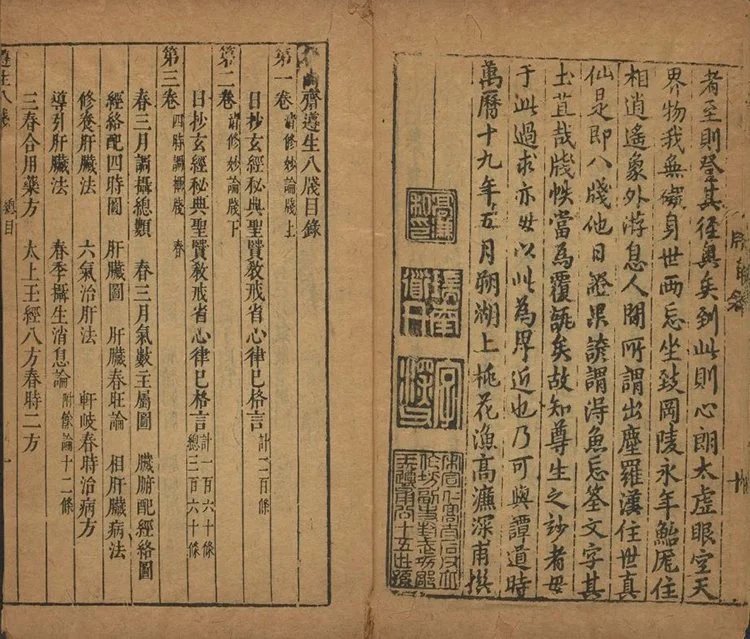 者至則登其徑奧矣到此則心朗太虛眼空天
界物我無身世两忘坐致岡陵永年鮐住
相逍遙象外游息人間所謂出塵羅漢住世真
仙是即八牋他日證果諺謂淂魚忘筌文字其
土苴哉牋帙當為覆瓿矣故知尊生之妙者毋
于此過求亦毋以此為厚近也乃可與譚道時
萬曆十九年五月朔湖上桃花漁高濂深甫撰
齋遵生八牋目錄
第一卷 清修妙論牋上
日抄玄經秘典聖賢教戒省心律巳格言 計一百條
第二卷 清修妙論牋下
日抄玄經秘典聖賢教戒省心律巳格言 計一百六十條 總三百六十條
第三卷 四時調攝牋 春
春三月調攝總類 春三月氣數主屬圖 臟腑配經絡圖
經絡配四時圖 肝臟圖 肝臟春旺論 相肝臟病法
修養肝臟法 六氣治肝法 軒岐春時治病方
導引肝臟法 春季攝生消息論 附餘論十二條
三春合用藥方 太上玉經八方春時二方
遵生八牋 總目 一